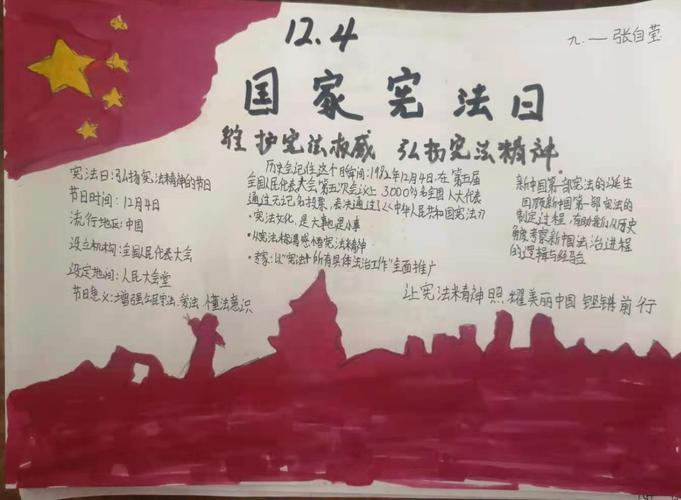 12.4
九.一 张自莹
国家宪法日
维护宪法权威 弘扬宪法精神.
宪法日:弘扬宪法精神的节日
节日时间:12月4日
流行地区:中国
设立机构:全国人民代表大会
设定地间:人民大会堂
节日意义:增强公民学法、爱法、懂法意识
历史会记住这个时间:1982年12月4日.在第五届
全国人民代表大会第五次会议上3000多名全国人大代表
通过无记名投票,表决通过了《中华人民共和国宪法》
·宪法文化,是大事也是小事
·从宪法根源感悟宪法精神
·专家:以"宪法中所有具体法治工作"全面推广
新中国第一部宪法的诞生
回顾新中国第一部宪法的
制定过程,有助我们从历史
角度考察新中国法治进程
的逻辑与经验
让宪法精神照耀美丽中国 铿锵前行